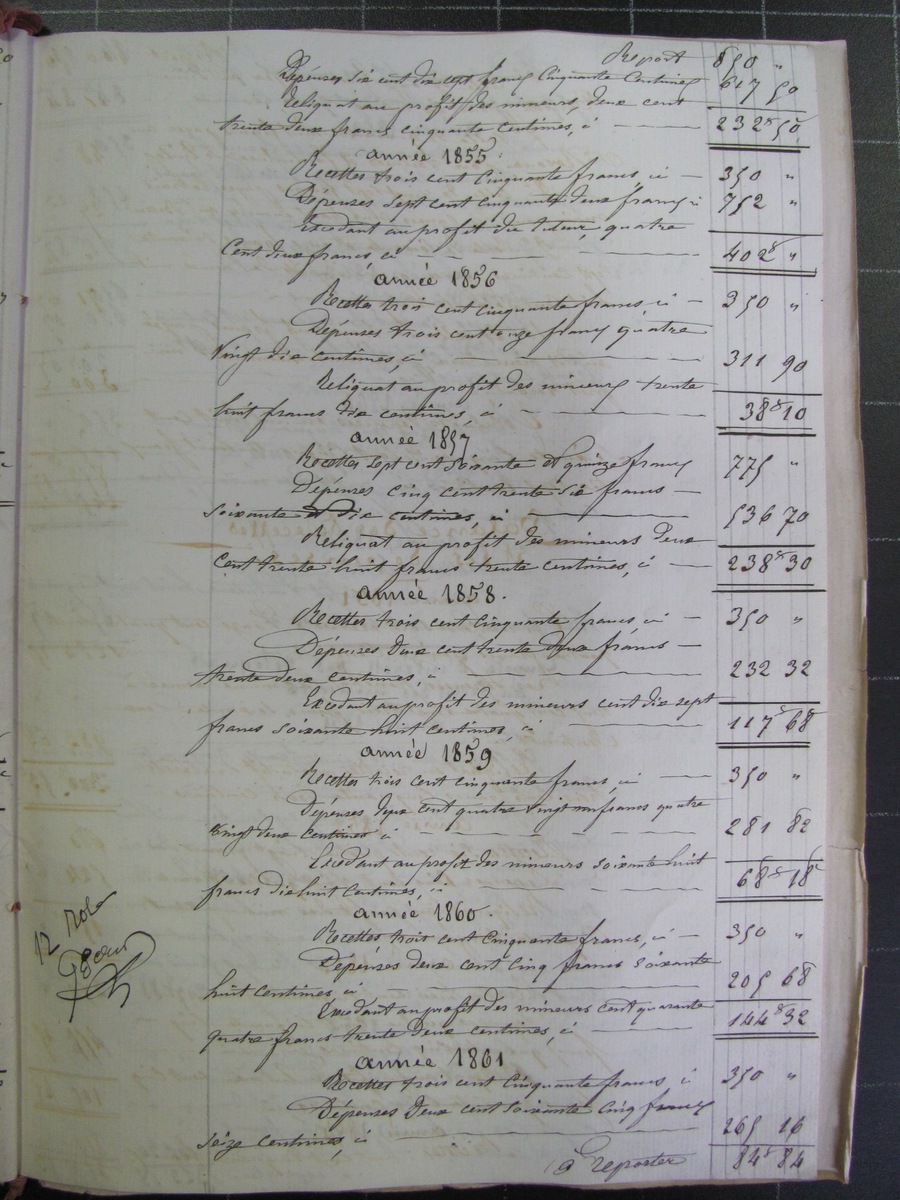 Report 850 "
Dépenses six cent dix sept francs Cinquante Centimes 617 50
Reliquat au profit des mineurs, deux cent
trente deux francs cinquante centimes, ci — 232 50
année 1855.
Recettes trois cent Cinquante francs, ci — 350 "
Dépenses sept cent cinquante deux francs ci 752 "
Excédant au profit du tuteur, quatre
Cent deux francs, ci — 402 "
année 1856
Recettes trois cent cinquante francs, ci — 350 "
Dépenses trois cent onze francs quatre
Vingt dix centimes, ci — 311 90
Reliquat au profit des mineurs trente
huit francs dix centimes, ci — 38 10
année 1857
Recettes sept cent soixante et quinze francs 775 "
Dépenses cinq cent trente six francs —
soixante et dix centimes, ci — 536 70
Reliquat au profit des mineurs deux
cent trente huit francs trente centimes, ci — 238 30
année 1858.
Recettes trois cent Cinquante francs, ci — 350 "
Dépenses deux cent trente deux francs —
trente deux centimes, ci — 232 32
Excédant au profit des mineurs cent dix sept
francs soixante huit centimes, ci — 117 68
année 1859
Recettes trois cent cinquante francs, ci — 350 "
Dépenses deux cent quatre vingt un francs quatre
vingt deux centimes ci — 281 82
Excédant au profit des mineurs soixante huit
francs dix huit Centimes, ci — 68 18
année 1860.
Recettes trois cent Cinquante francs, ci — 350 "
Dépenses deux cent cinq francs soixante
huit centimes, ci — 205 68
Excédant au profit des mineurs cent quarante
quatre francs trente deux centimes, ci — 144 32
année 1861
Recettes trois cent Cinquante francs, ci 350 "
Dépenses Deux cent soixante cinq francs
seize centimes, ci — 265 16
à reporter 84 84
12